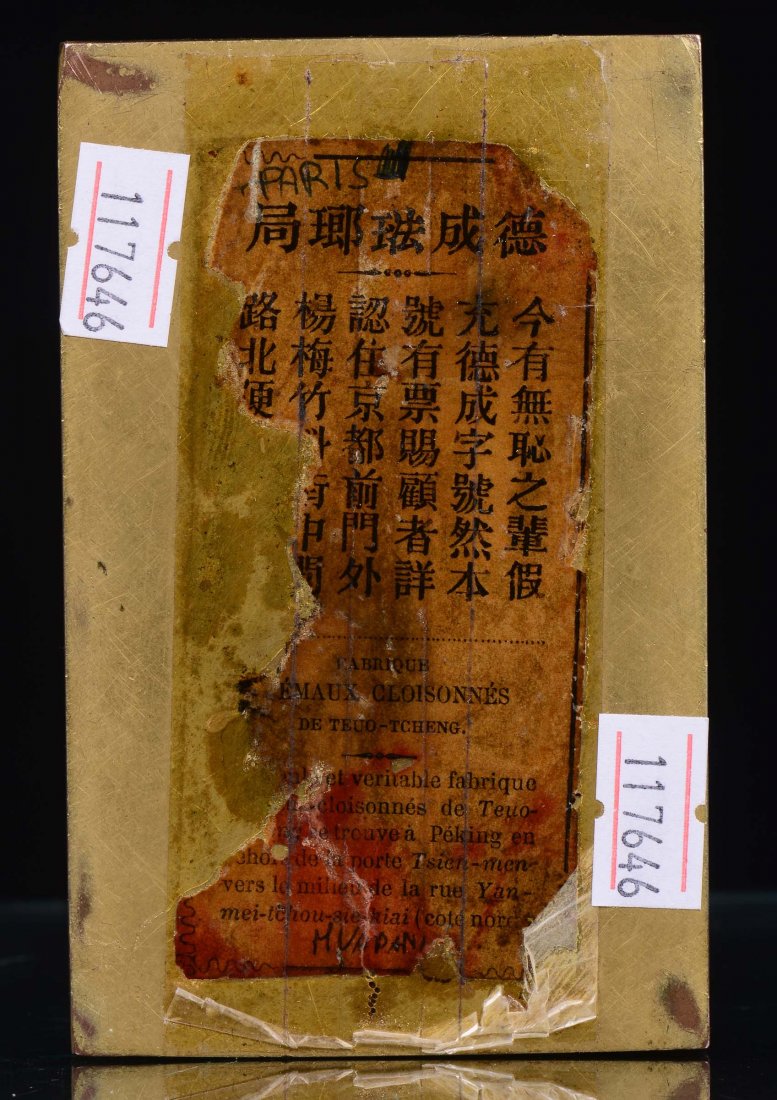 117646
PARIS
德成琺瑯局
今有無恥之輩假
充德成字號然本
號有票賜顧者詳
認住京都前門外
楊梅竹斜街中間
路北便
FABRIQUE
ÉMAUX CLOISONNÉS
DE TEUO-TCHENG.
et veritable fabrique
cloisonnés de Teuo-
se trouve à Péking en
de la porte Tsien-men-
vers le milieu de la rue Yan-
mei-tchou-sie-kiai (côté nord
117646